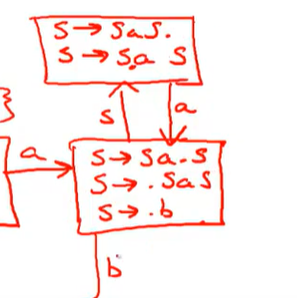 S → SaS.
S → S.a S
}
S
a
a
S → Sa.S
S → .SaS
S → .b
b